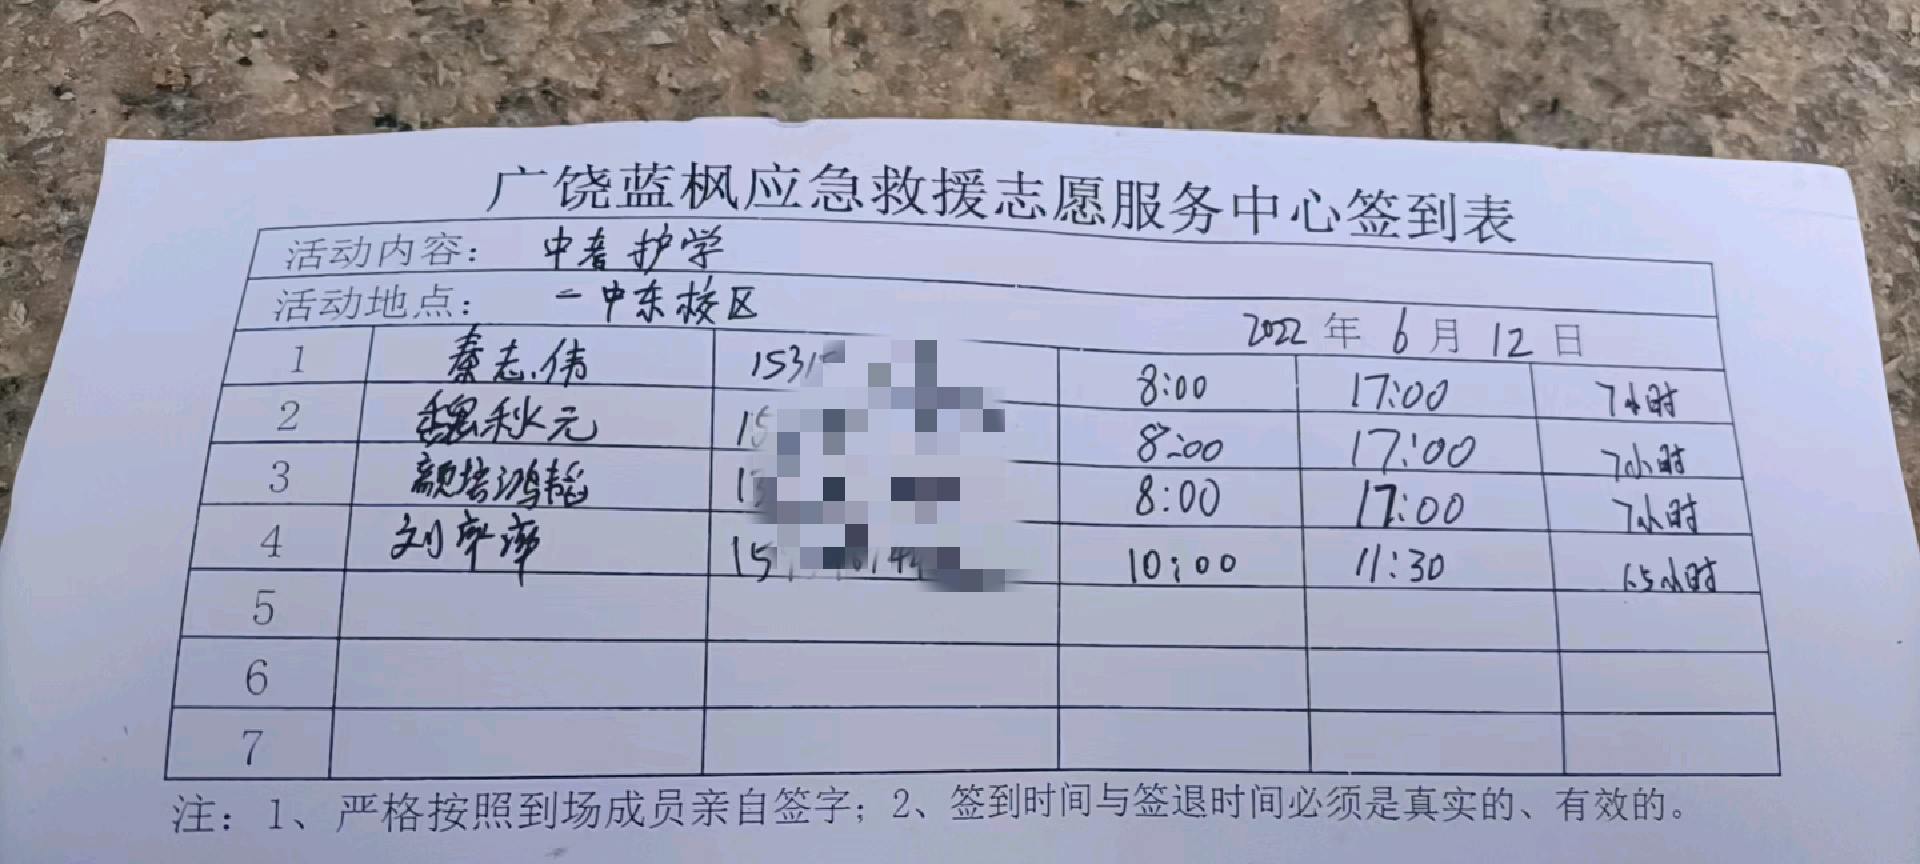 广饶蓝枫应急救援志愿服务中心签到表
活动内容： 中考护学
活动地点： 一中东校区 2022年6月12日
1 秦志伟 1531 8:00 17:00 7小时
2 魏秋元 15 8:00 17:00 7小时
3 颜培鸿韬 13 8:00 17:00 7小时
4 刘 15 10:00 11:30 1.5小时
5
6
7
注：1、严格按照到场成员亲自签字；2、签到时间与签退时间必须是真实的、有效的。